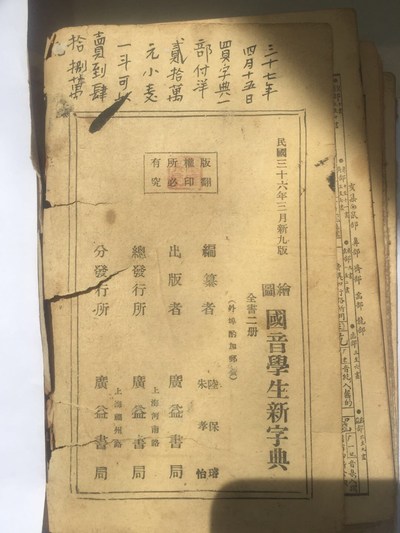 三十七年
四月十五日
買字典一
部付洋
貳拾萬
元小麦
一斗可以
賣到肆
拾捌萬
民國三十六年三月新九版
繪圖
國音學生新字典
全書二册
(外埠酌加郵費)
編纂者
陸保璿
朱孝怡
出版者
廣益書局
上海河南路
總發行所
廣益書局
上海福州路
分發行所
廣益書局
版權所有
翻印必究